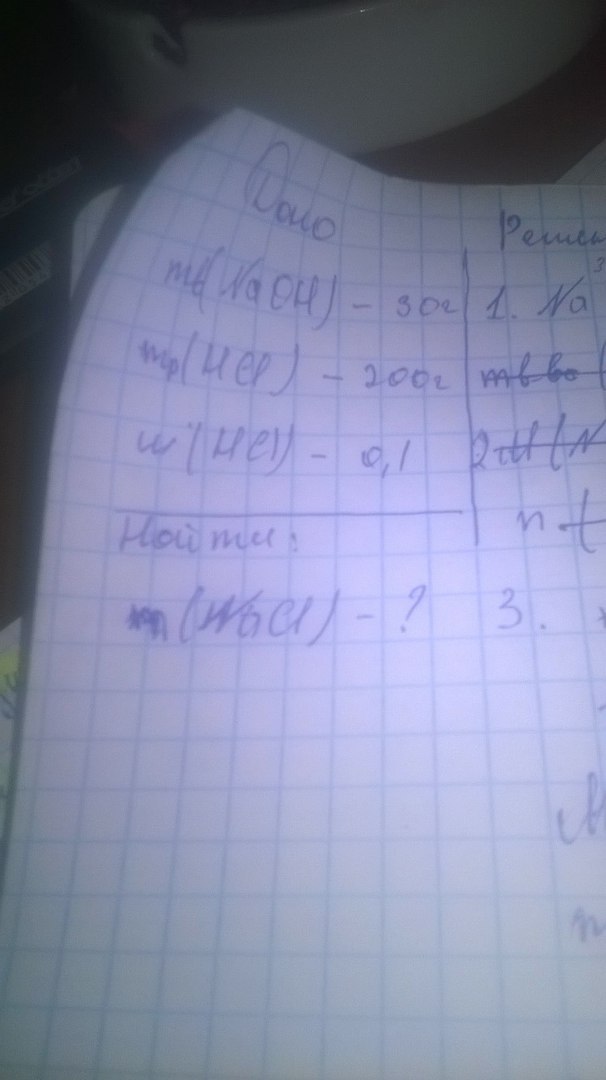 Дано
mв(NaOH) – 30г
mр(HCl) – 200г
w(HCl) – 0,1
Найти:
m(NaCl) – ?
Решен
1. Na
2
n
3.